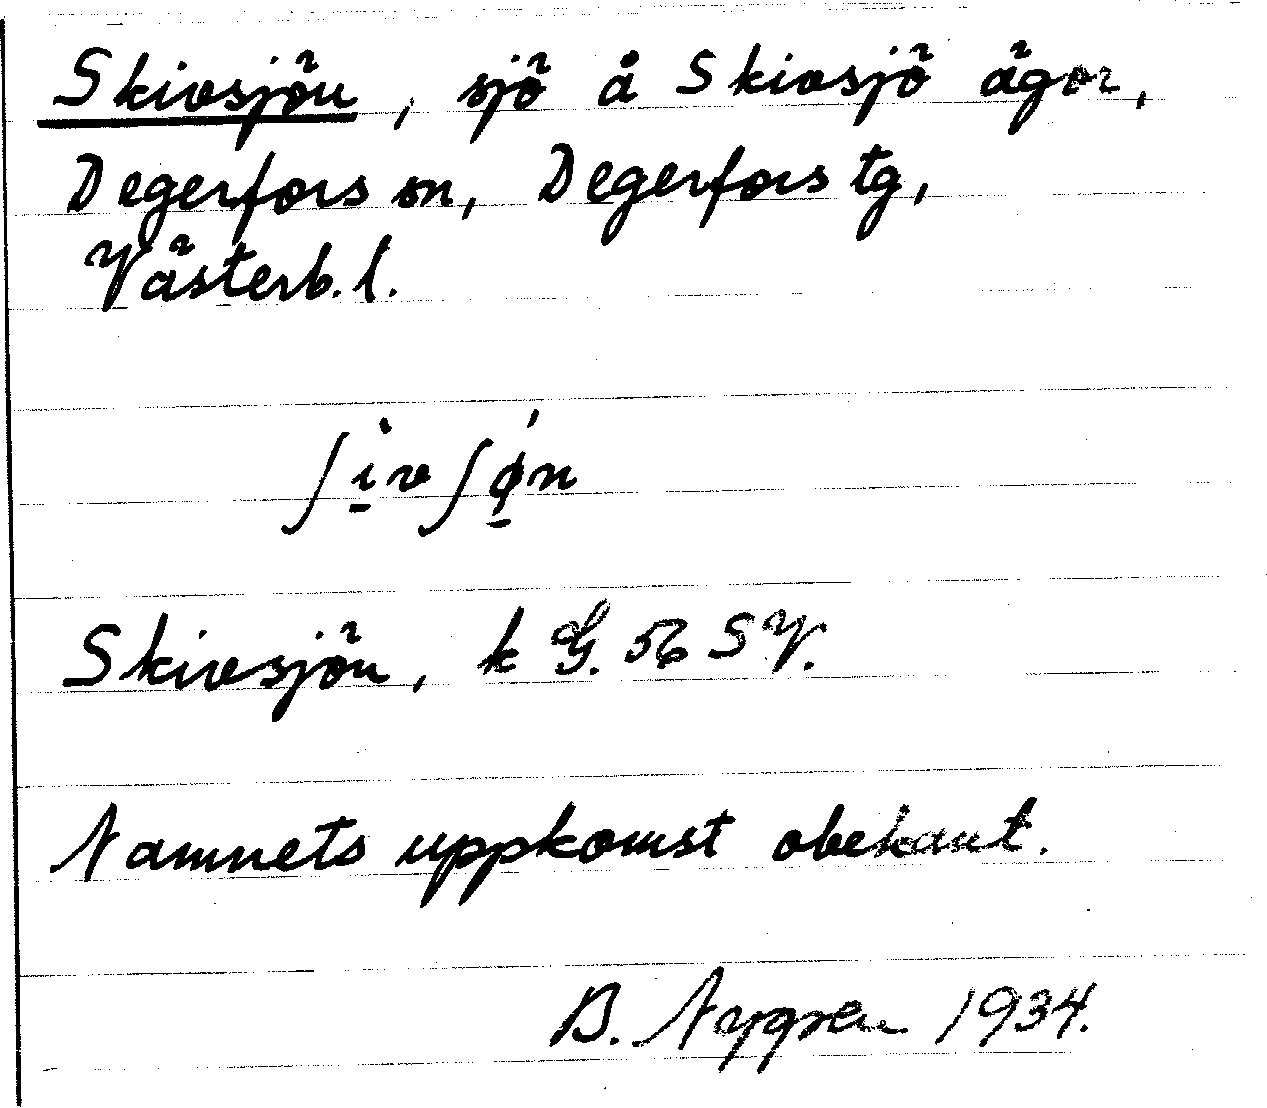 Skivsjön, sjö å Skivsjö ägor,
Degerfors sn, Degerfors tg,
Västerb. l.
ʃi̱vʃø̱n
Skivsjön, k G. 56 SV.
Namnets uppkomst obekant.
B. Nygren 1934.